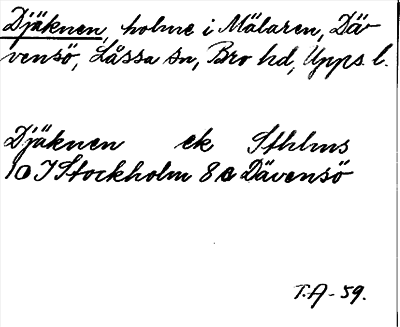 Djäknen, holme i Mälaren, Dä-
vensö, Låssa sn, Bro hd, Upps. l.
Djäknen ek Sthlms
10 I Stockholm 8 c Dävensö
T.A-59.